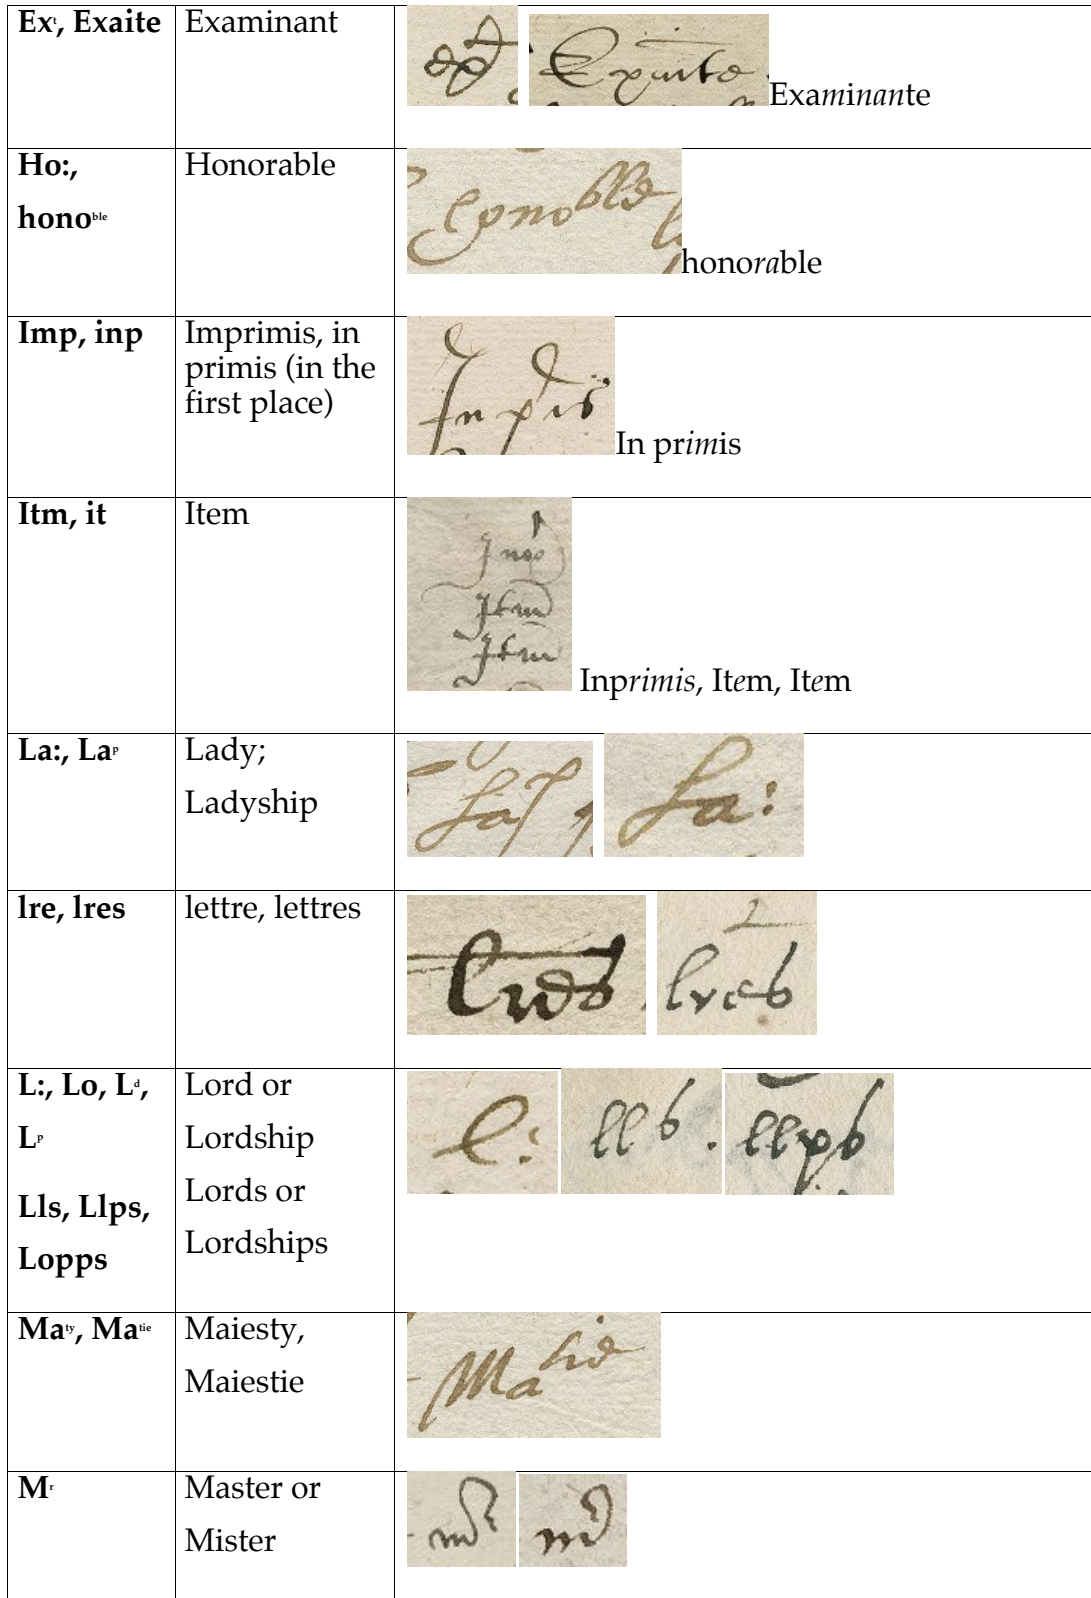 Exᵗ, Exaite
Examinant
Exaᵗ Exaite
Examinante
Ho:,
honoᵇˡᵉ
Honorable
honoble
honorable
Imp, inp
Imprimis, in
primis (in the
first place)
In pis
In primis
Itm, it
Item
Inp
Itm
Itm
Inprimis, Item, Item
La:, Laᵖ
Lady;
Ladyship
Laᵖ La:
lre, lres
lettre, lettres
lres lres
L:, Lo, Lᵈ,
Lᵖ
Lls, Llps,
Lopps
Lord or
Lordship
Lords or
Lordships
L: lls. llps
Maᵗʸ, Maᵗⁱᵉ
Maiesty,
Maiestie
Maᵗⁱᵉ
Mʳ
Master or
Mister
mʳ mʳ